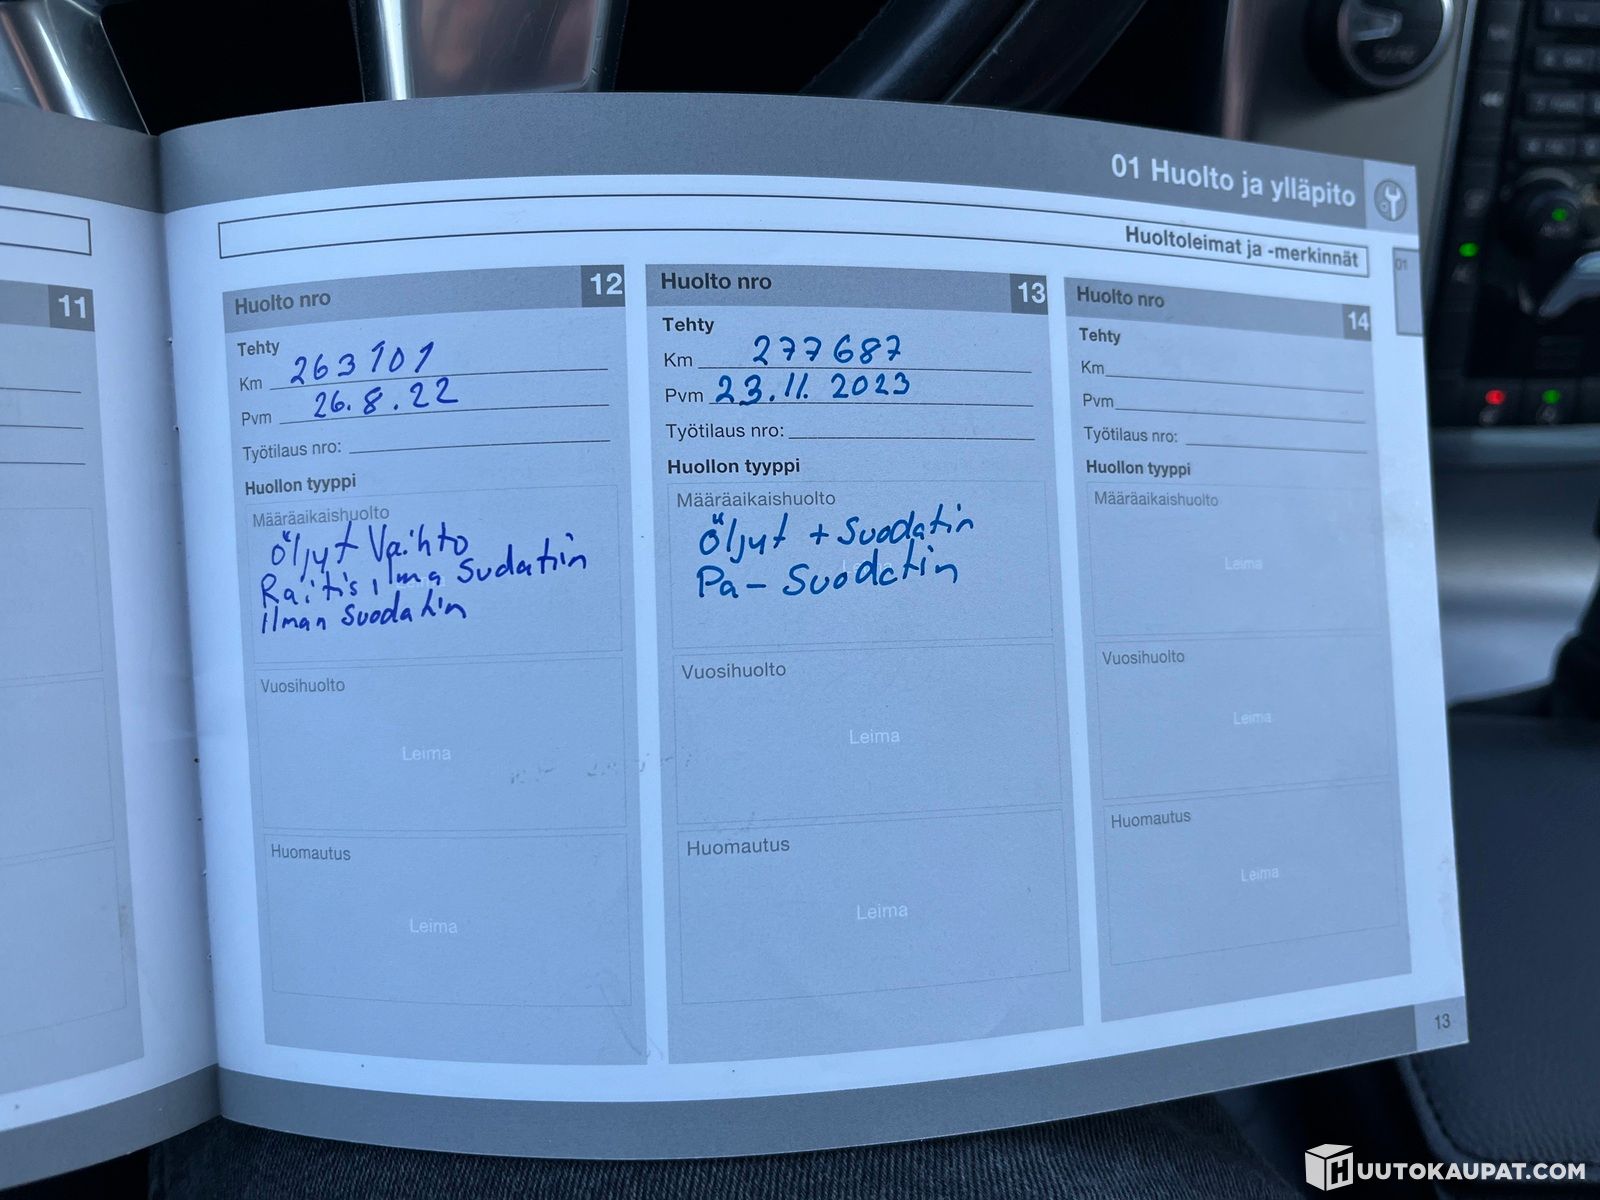 01 Huolto ja ylläpito
Huoltoleimat ja -merkinnät
01
11
Huolto nro 12
Tehty
Km 263101
Pvm 26.8.22
Työtilaus nro:
Huollon tyyppi
Määräaikaishuolto
Öljyt Vaihto
Raitis ilma Sudatiin
Ilman Suodatin
Vuosihuolto
Leima
Huomautus
Leima
Huolto nro 13
Tehty
Km 277687
Pvm 23.11.2023
Työtilaus nro:
Huollon tyyppi
Määräaikaishuolto
Öljyt + Suodatin
Pa- Suodatin
Vuosihuolto
Leima
Huomautus
Leima
Huolto nro 14
Tehty
Km
Pvm
Työtilaus nro:
Huollon tyyppi
Määräaikaishuolto
Leima
Vuosihuolto
Leima
Huomautus
Leima
13
HUUTOKAUPAT.COM